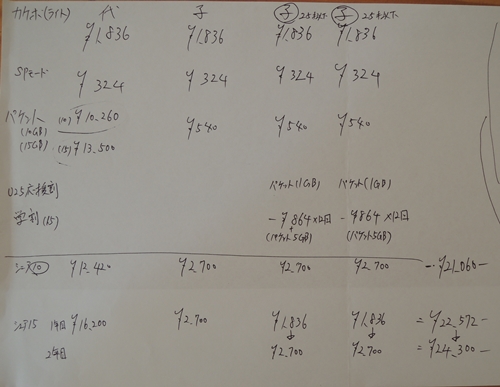 カケホ(ライト) 代 子 子 25才以下 子 25才以下
¥1,836 ¥1,836 ¥1,836 ¥1,836
SPモード ¥324 ¥324 ¥324 ¥324
パケット (10) ¥10.260 ¥540 ¥540 ¥540
(10GB)
(15GB) (15) ¥13.500
U25応援割 パケット(1GB) パケット(1GB)
学割(15) -¥864×12回 -¥864×12回
(パケット5GB) (パケット5GB)
シェア10 ¥12.420 ¥2.700 ¥2.700 ¥2.700 ¥21.060
シェア15 1年目 ¥16.200 ¥2.700 ¥1,836 ¥1,836 =¥22.572
2年目 ¥2.700 ¥2.700 =¥24.300